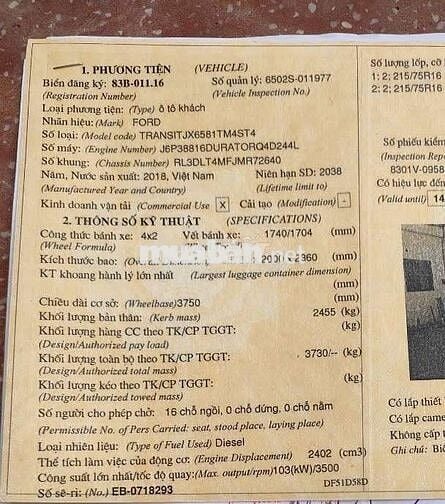 1. PHƯƠNG TIỆN (VEHICLE)
Biển đăng ký: 83B-011.16 Số quản lý: 6502S-011977
(Registration Number) (Vehicle Inspection No.)
Loại phương tiện: (Type) ô tô khách
Nhãn hiệu: (Mark) FORD
Số loại: (Model code) TRANSITJX6581TM4ST4
Số máy: (Engine Number) J6P38816DURATORQ4D244L
Số khung: (Chassis Number) RL3DLT4MFJMR72640
Năm, Nước sản xuất: 2018, Việt Nam Niên hạn SD: 2038
(Manufactured Year and Country) (Lifetime limit to)
Kinh doanh vận tải (Commercial Use) X Cải tạo (Modification) -
2. THÔNG SỐ KỸ THUẬT (SPECIFICATIONS)
Công thức bánh xe: 4x2 Vết bánh xe: 1740/1704 (mm)
(Wheel Formula)
Kích thước bao: 2360 (mm)
KT khoang hành lý lớn nhất (Largest luggage container dimension)
(mm)
Chiều dài cơ sở: (Wheelbase)3750 (mm)
Khối lượng bản thân: (Kerb mass) 2455 (kg)
Khối lượng hàng CC theo TK/CP TGGT: (kg)
(Design/Authorized pay load)
Khối lượng toàn bộ theo TK/CP TGGT: 3730/-- (kg)
(Design/Authorized total mass)
Khối lượng kéo theo TK/CP TGGT: (kg)
(Design/Authorized towed mass)
Số người cho phép chở: 16 chỗ ngồi, 0 chỗ đứng, 0 chỗ nằm
(Permissible No. of Pers Carried: seat, stood place, laying place)
Loại nhiên liệu: (Type of Fuel Used) Diesel
Thể tích làm việc của động cơ: (Engine Displacement) 2402 (cm3)
Công suất lớn nhất/tốc độ quay:(Max. output/rpm)103(kW)/3500
Số sê-ri: (No.) EB-0718293 DF51D58D
Số lượng lốp, cỡ
1: 2; 215/75R16
2: 2; 215/75R16
Số phiếu kiểm
(Inspection Rep
8301V-0958
Có hiệu lực đến
(Valid until) 14
Có lắp thiết
Có lắp came
Không cấp
Ghi chú: Biể